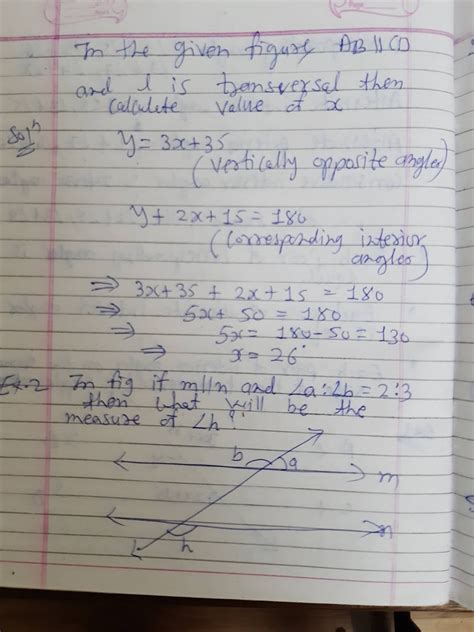 In the given figure, AB || CD
and l is transversal then
calculate value of x
Solⁿ
y = 3x+35
(vertically opposite angles)
y + 2x + 15 = 180
(corresponding interior
angles)
⇒ 3x+35 + 2x+15 = 180
⇒ 5x + 50 = 180
⇒ 5x = 180-50 = 130
⇒ x = 26°
Ex-2 In fig if m||n and ∠a:∠b = 2:3
then what will be the
measure of ∠h?
b a
m
n
h
l